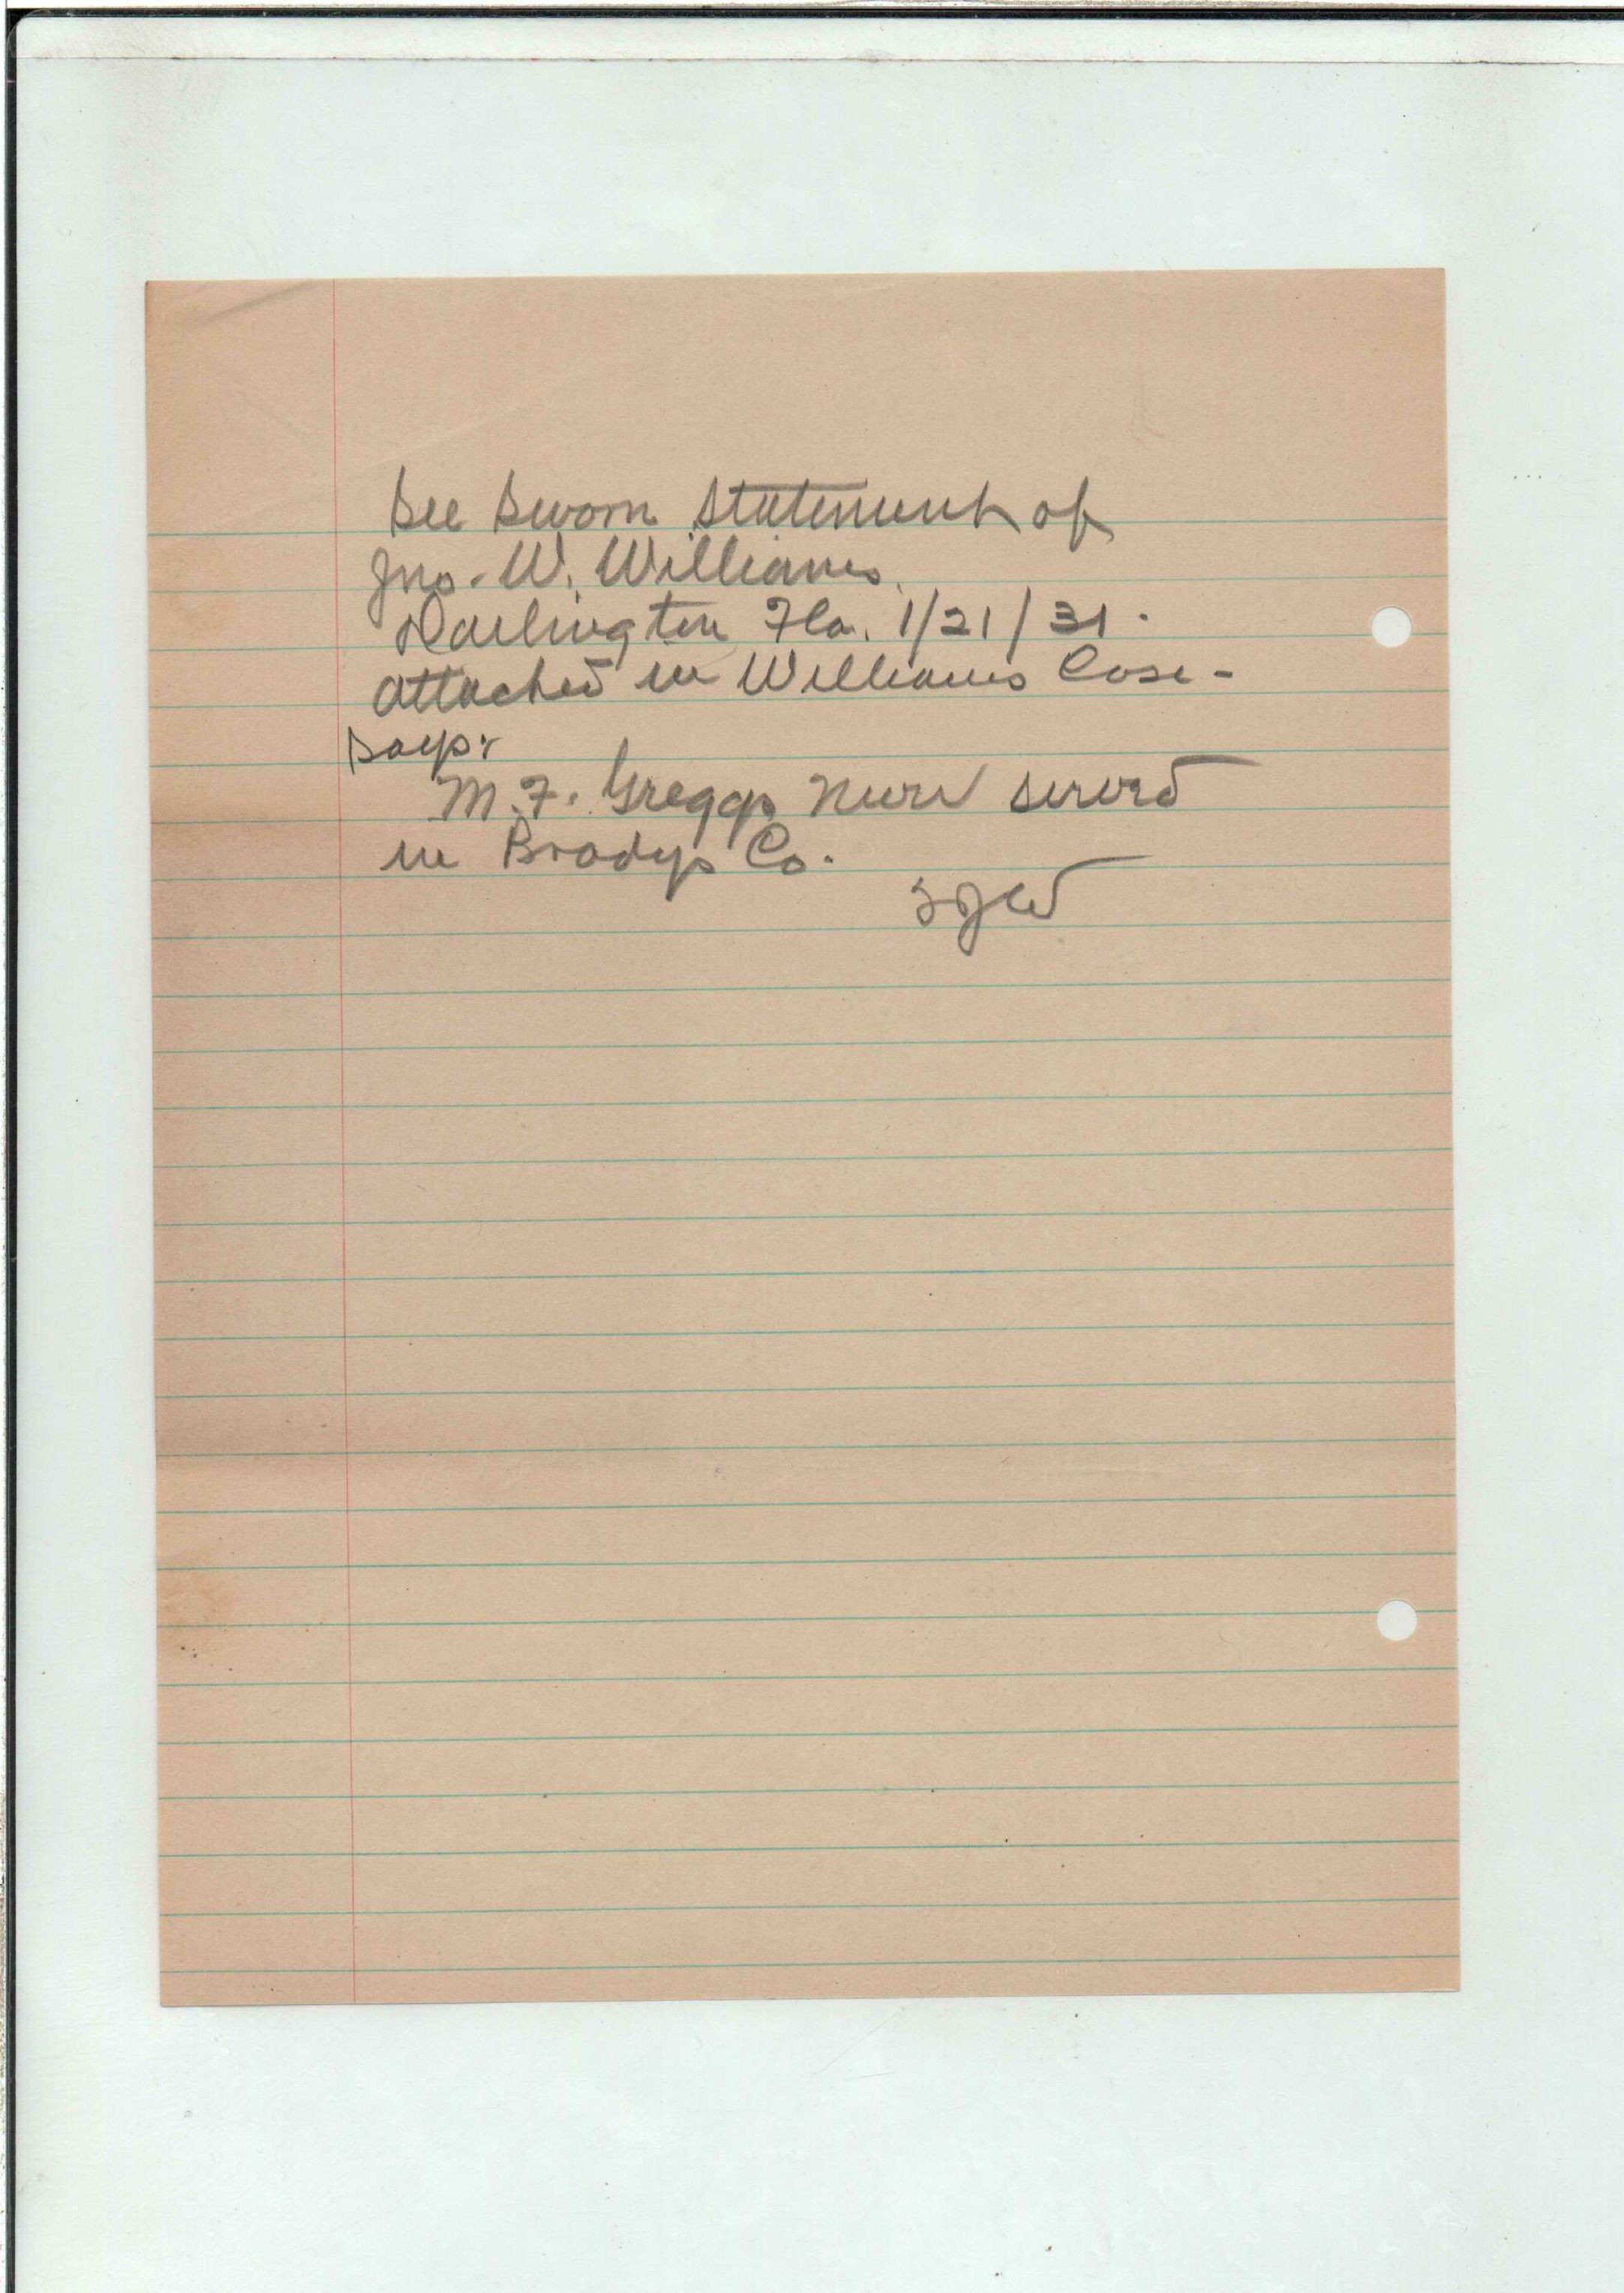 See Sworn Statement of
Jno. W. Williams.
Darlington Fla. 1/21/31.
attached in Williams Case -
Says
M. F. Greggs never served
in Bradys Co.
SJW